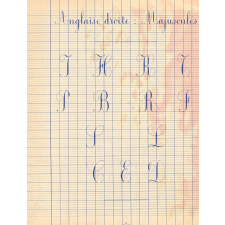 Anglaise droite : Majuscules
I H K T
P B R F
S L
C E D